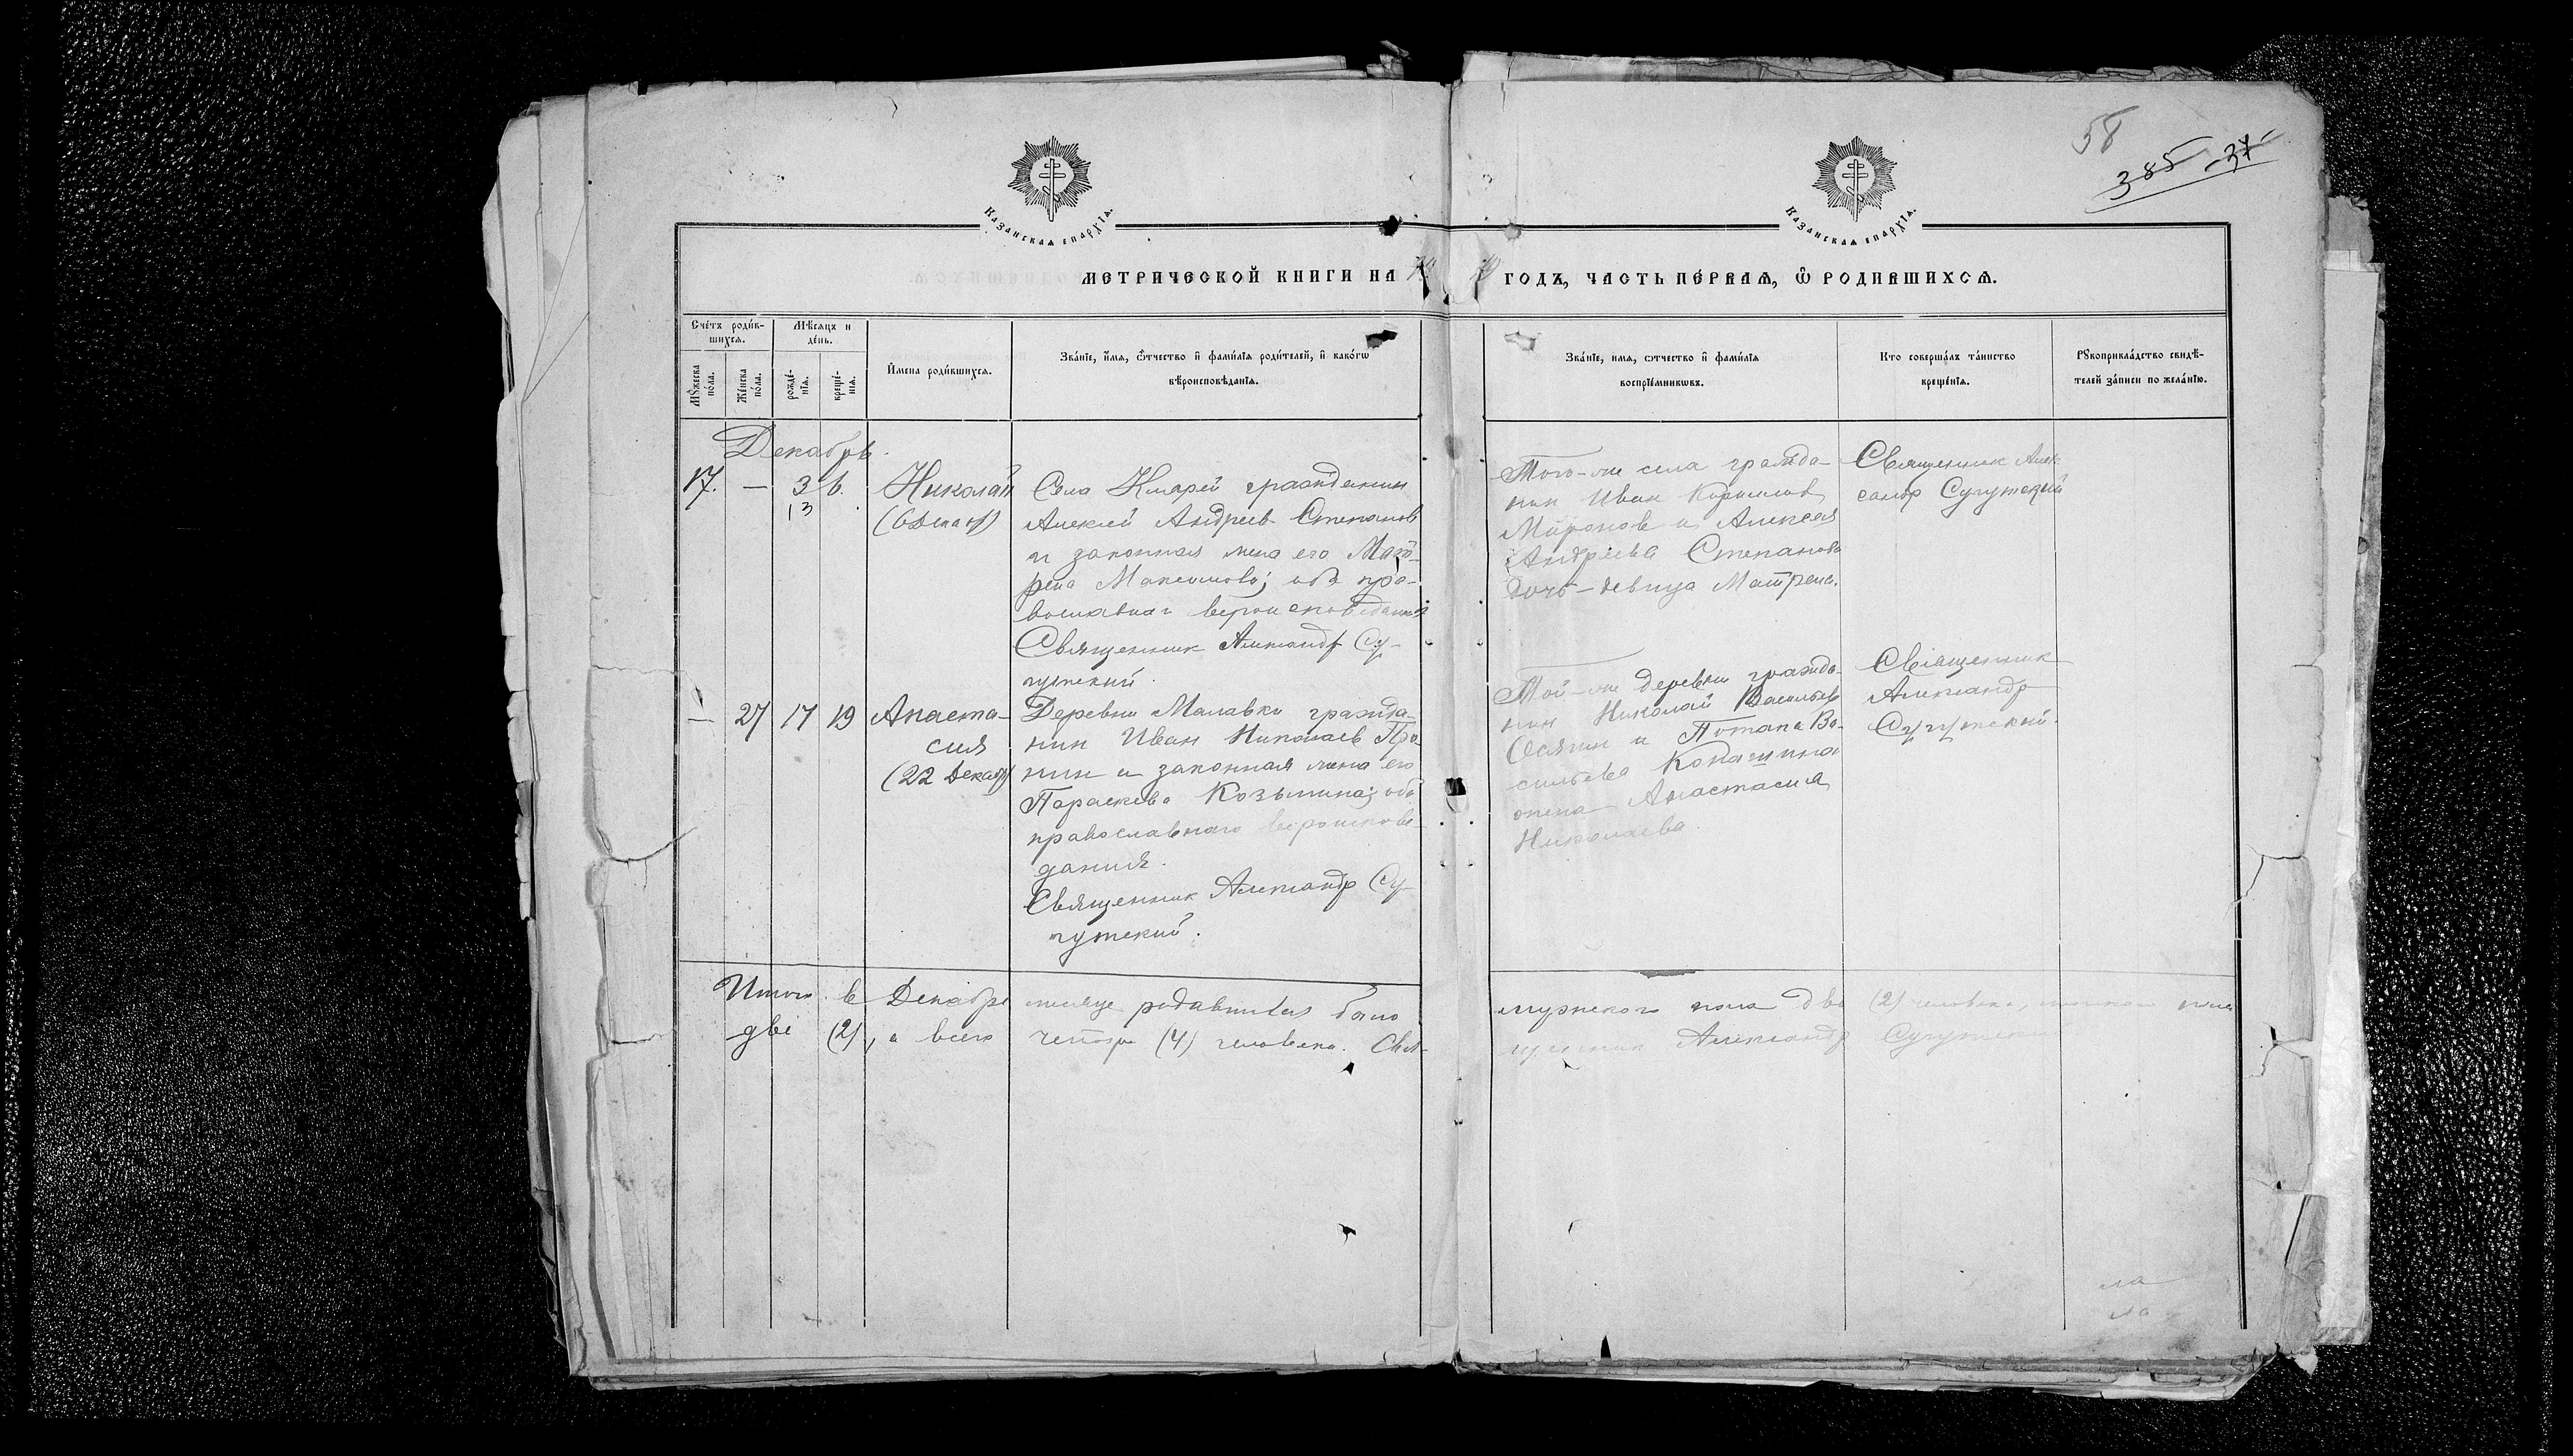 58
385 - 37
Казанская епархїѧ.
Казанская епархїѧ.
МЕТРИЧЕСКОЙ КНИГИ НА
ГОДЪ, ЧАСТЬ ПЕ́РВАѦ, Ѽ РОДИВШИХСѦ.
Сче́тъ роди́в-
шихсѧ.
Мꙋ́жеска по́ла.
Же́нска по́ла.
Мѣ́сѧцъ и
де́нь.
рожде́-
нїѧ.
креще́-
нїѧ.
И҆́мена роди́вшихсѧ.
Зва́нїе, и҆́мѧ, ѻ҆́тчество и҆ фами́лїѧ роди́телей, и҆ како́гѡ
вѣроисповѣ́данїѧ.
Зва́нїе, имѧ, отчество и҆ фами́лїѧ
воспрїе́мникѡвъ.
Кто соверша́лъ та́инство
креще́нїѧ.
Рꙋкоприкла́дство свидѣ́-
телей за́писи по жела́нїю.
Декабрь.
17. — 3 6. Николай
13
Села Ключей гражданин
Алексей Андреев Степанов
и законная жена его Мат-
рена Максимова; оба пра-
вославнаг вероисповедания
Священник Александр Су-
гутский.
Того-же села гражда-
нин Иван
Миронов и Алексея
Андреева Степанова
дочь-девица Матрена.
Священник Алек-
сандр Сугутский
— 27 17 19 Анаста-
сия
(22 Декабр)
Деревни Малавки гражда-
нин Иван Николаев Про-
нин и законная жена его
Параскева Козьмина; оба
православнаго вероиспове-
дания.
Священник Александр Су-
гутский.
Той-же деревни гражда-
нин Николай Васильев
и Потапа Ва-
сильева
жена Анастасия
Николаева.
Священник
Александр
Сугутский.
Итого в Декабре месяце родавшихся было мужского пола два (2) человека, женскаго пола
две (2), а всего четыре (4) человека. Свя-щенник Александр Сугутский